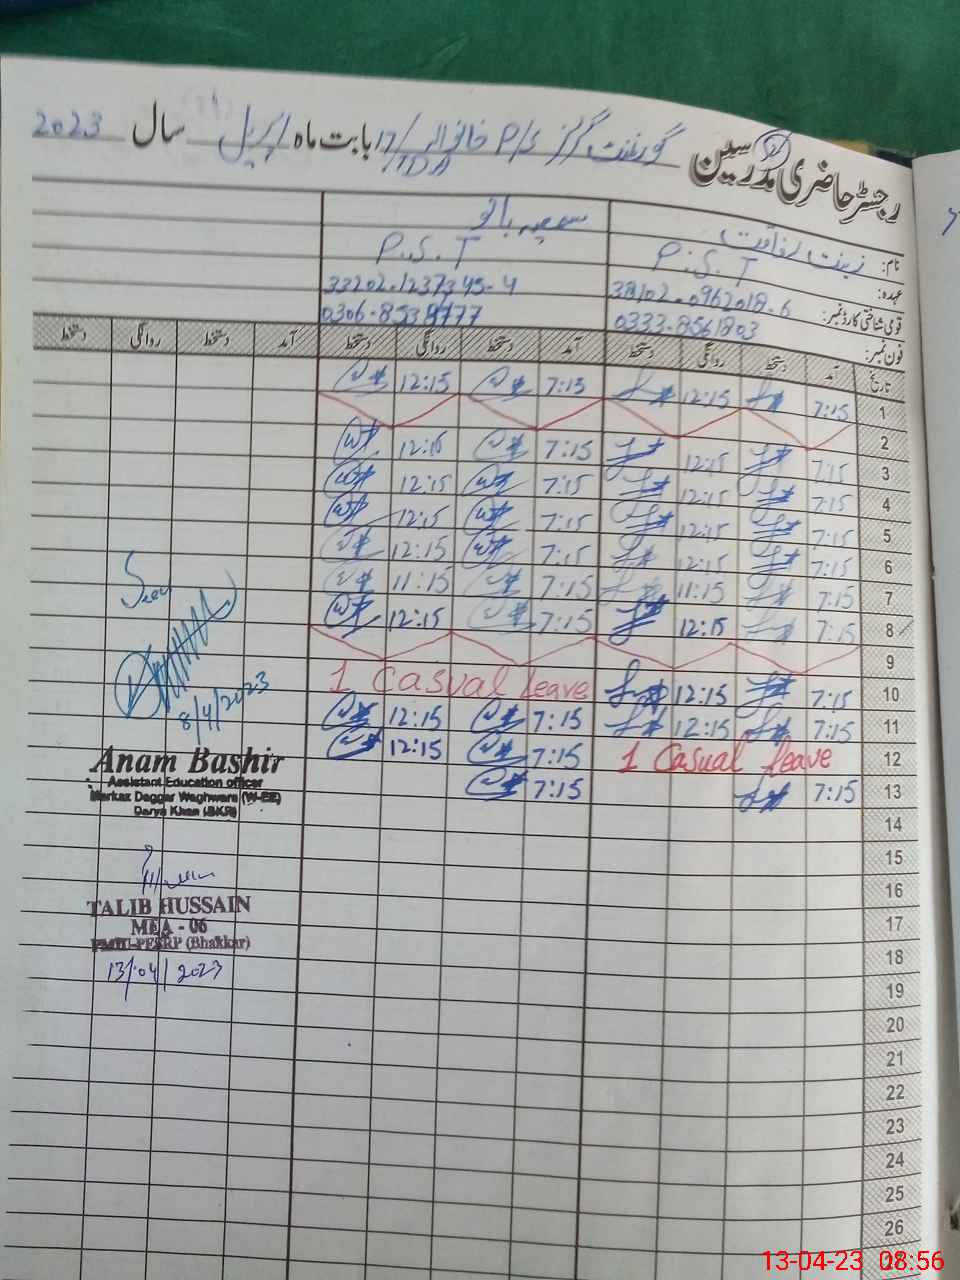 رجسٹر حاضری مدرسین گورنمنٹ گرلز P/S خانوالہ 17/TDA بابت ماہ اپریل سال 2023
نام: زینت رفاقت سمیہ بانو
عہدہ: P.S.T P.S.T
قومی شناختی کارڈ نمبر: 38102-0962018-6 33202-1237345-4
فون نمبر: 0333-8561803
تاریخ آمد دستخط روانگی دستخط آمد دستخط روانگی دستخط آمد دستخط روانگی دستخط
1 7:15 12:15 7:15 12:15
2
3 7:15 12:15 7:15 12:15
4 7:15 12:15 7:15 12:15
5 7:15 12:15 7:15 12:15
6 7:15 12:15 7:15 12:15
7 7:15 11:15 7:15 11:15
8 7:15 12:15 7:15 12:15
9
10 7:15 12:15 1 Casual leave
11 7:15 12:15 7:15 12:15
12 1 Casual leave 7:15 12:15
13 7:15 7:15
14
15
16
17
18
19
20
21
22
23
24
25
26
Seen
8/4/2023
Anam Bashir
Assistant Education officer
Markaz Daggar Waghwara (W-EE)
Darya Khan (BKR)
TALIB HUSSAIN
MEA - 06
PMIU-PESRP (Bhakkar)
13/04/2023
13-04-23 08:56